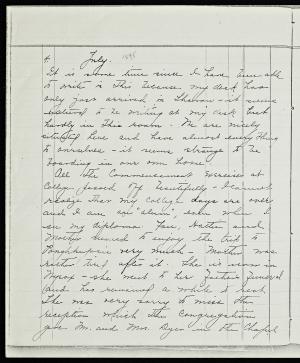 4 July. 1895
It is some time since I have been able
to write in this because my desk has
only just arrived in Sharon - it seems
natural to be writing at my desk but
hardly in this room - We are nicely
settled here and have almost everything
to ourselves - it seems strange to be
boarding in our own house.
All the Commencement Exercises at
College passed off beautifully - I cannot
realize that my college days are over
and I am an "alum", even when I
see my diploma. Papa, and
Mother seemed to enjoy the trip to
Poughkeepsie very much - Mother was
rather tired after it. She is now in
- she went to her Father's funeral
and has remained a while to rest.
She was very sorry to miss the
reception which the Congregation
gave Mr. and Mrs. Dyer in the Chapel